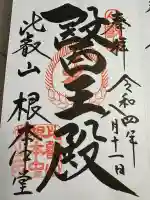 奉拝
令和四年
月十一日
醫王殿
比叡山
根本中堂